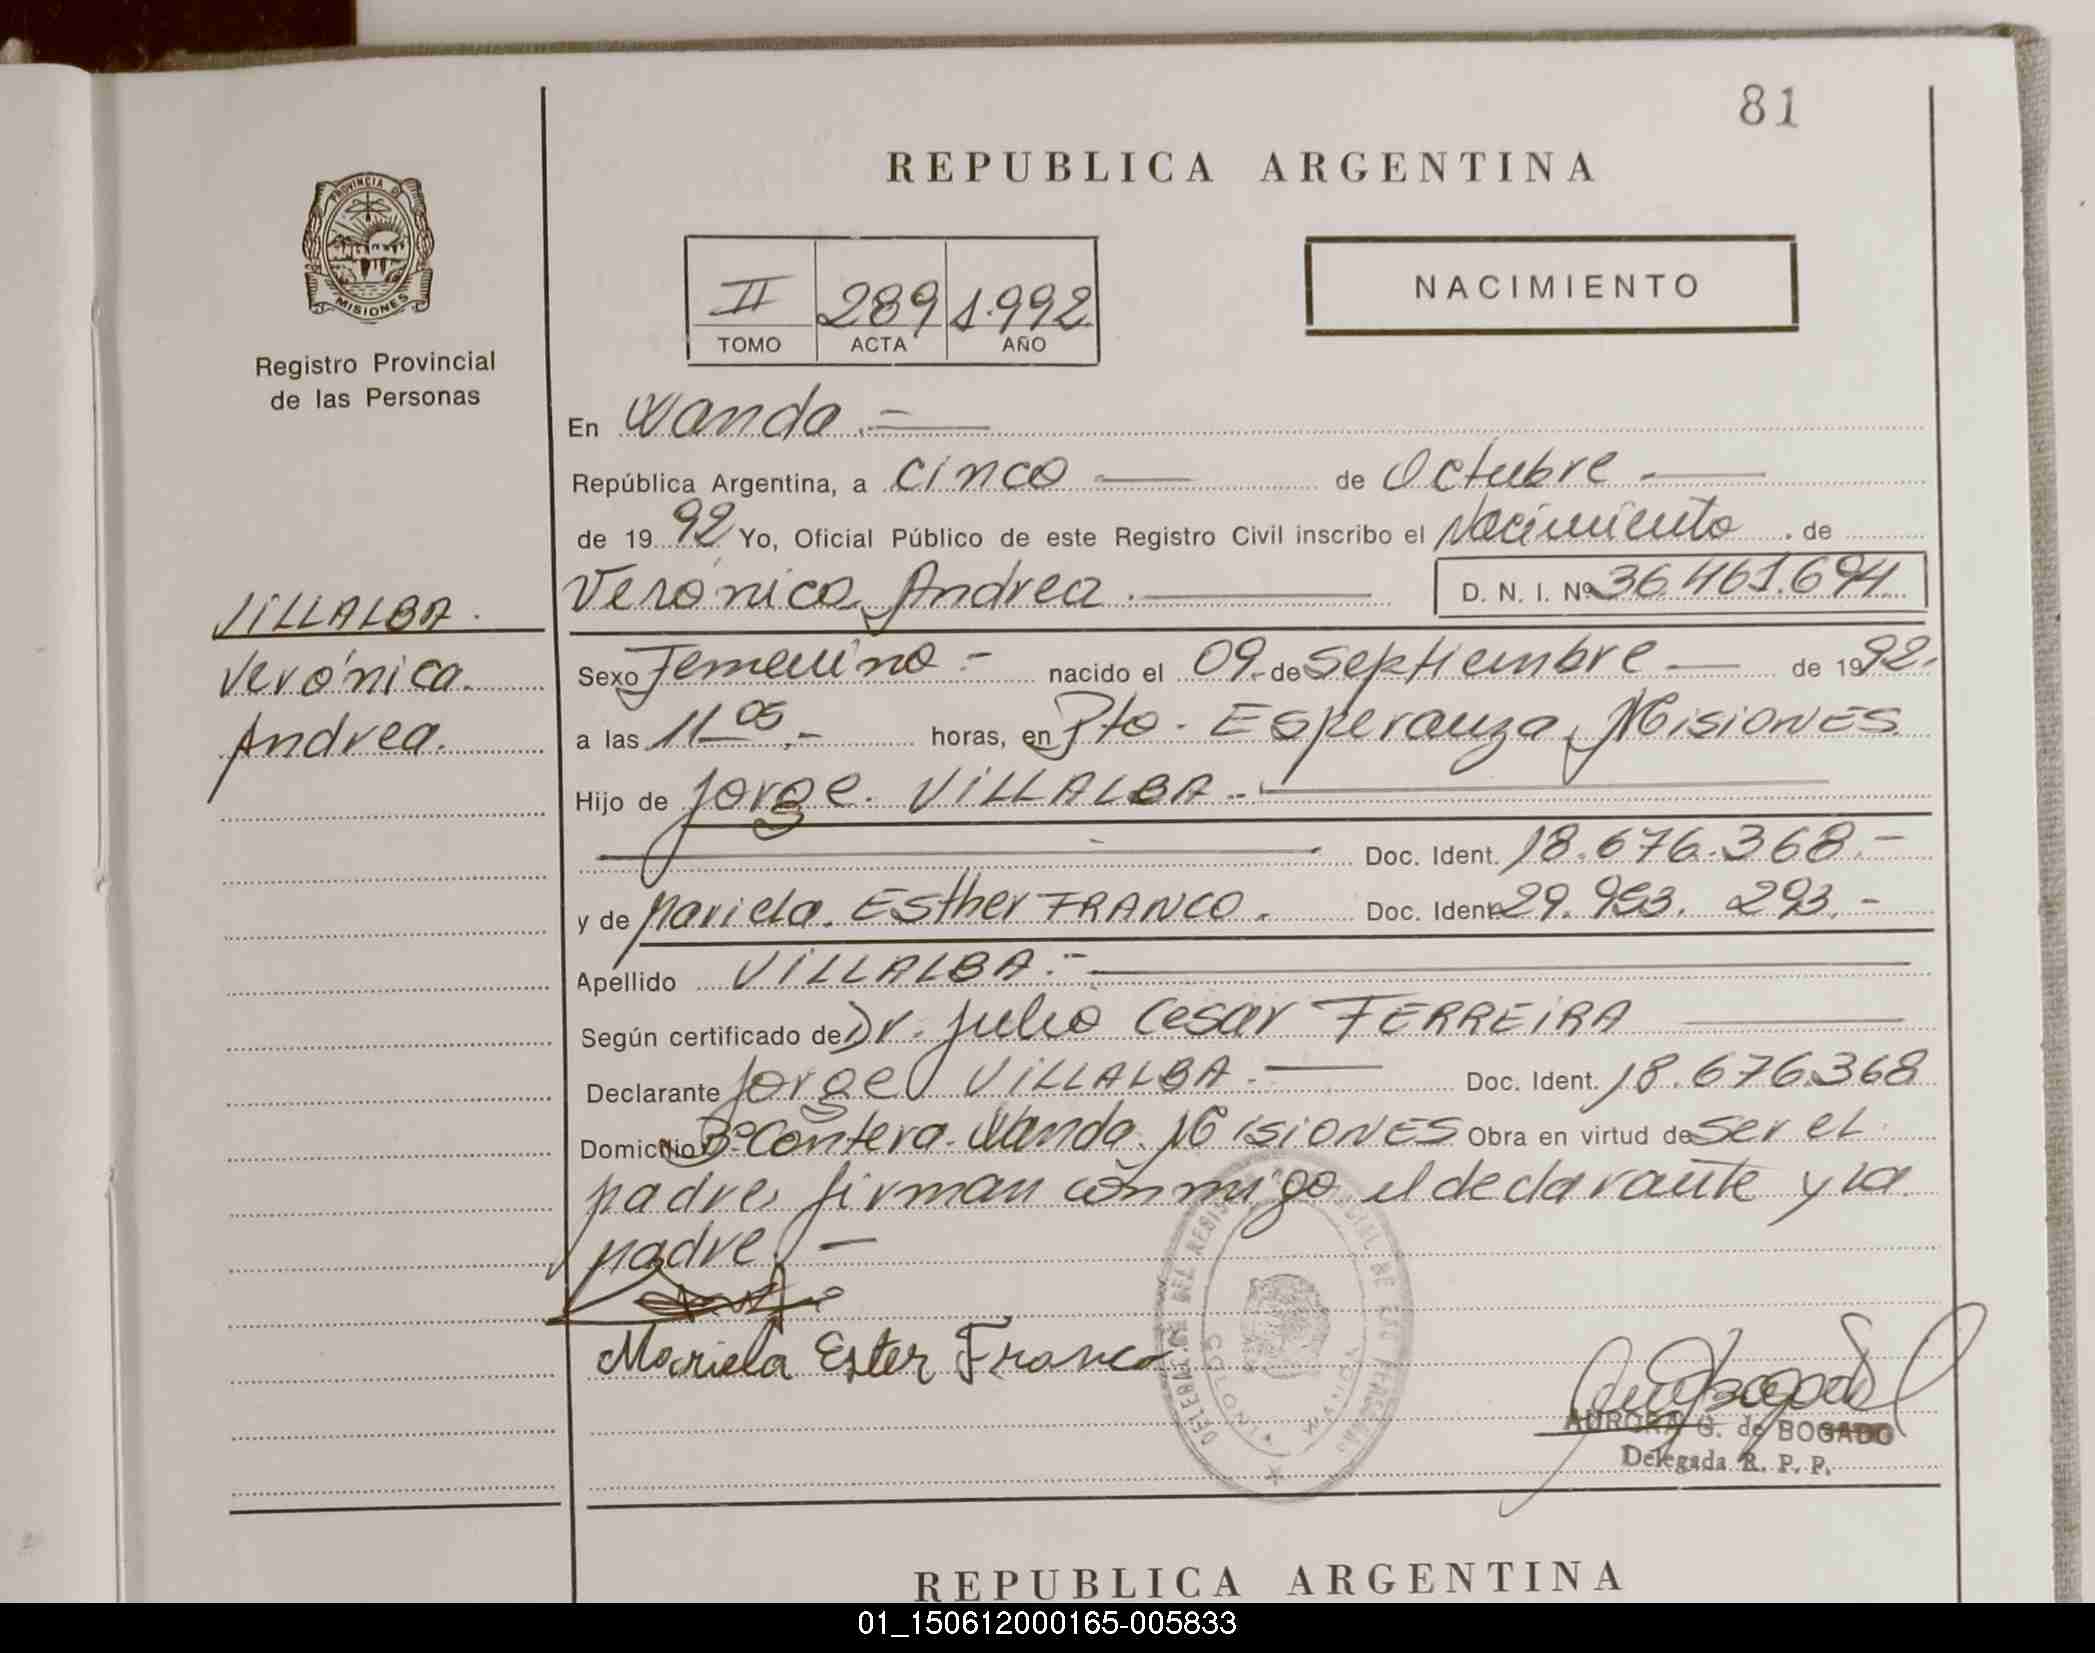 81
REPUBLICA ARGENTINA
PROVINCIA DE
MISIONES
Registro Provincial
de las Personas
II 289 1.992
TOMO ACTA AÑO
NACIMIENTO
En Wanda.=
República Argentina, a cinco — de Octubre.—
de 1992 Yo, Oficial Público de este Registro Civil inscribo el Nacimiento. de
Verónica Andrea.— D. N. I. Nº 36.461.694
VILLALBA.
Verónica.
Andrea.
Sexo Femenino.- nacido el 09.- de Septiembre — de 1992.
a las 11 05.- horas, en Pto. Esperanza, Misiones.
Hijo de Jorge. VILLALBA.-
Doc. Ident. 18.676.368.-
y de Mariela. Esther FRANCO. Doc. Ident. 29.953.293.-
Apellido VILLALBA.-
Según certificado de Dr. Julio Cesar FERREIRA
Declarante Jorge VILLALBA.— Doc. Ident. 18.676.368
Domicilio Bº Contera. Wanda. Misiones Obra en virtud de ser el
padre, firman conmigo el declarante y la
Madre.—
Mariela Ester Franco
WANDA
AURORA G. de BOGADO
Delegada R. P. P.
REPUBLICA ARGENTINA
01_150612000165-005833